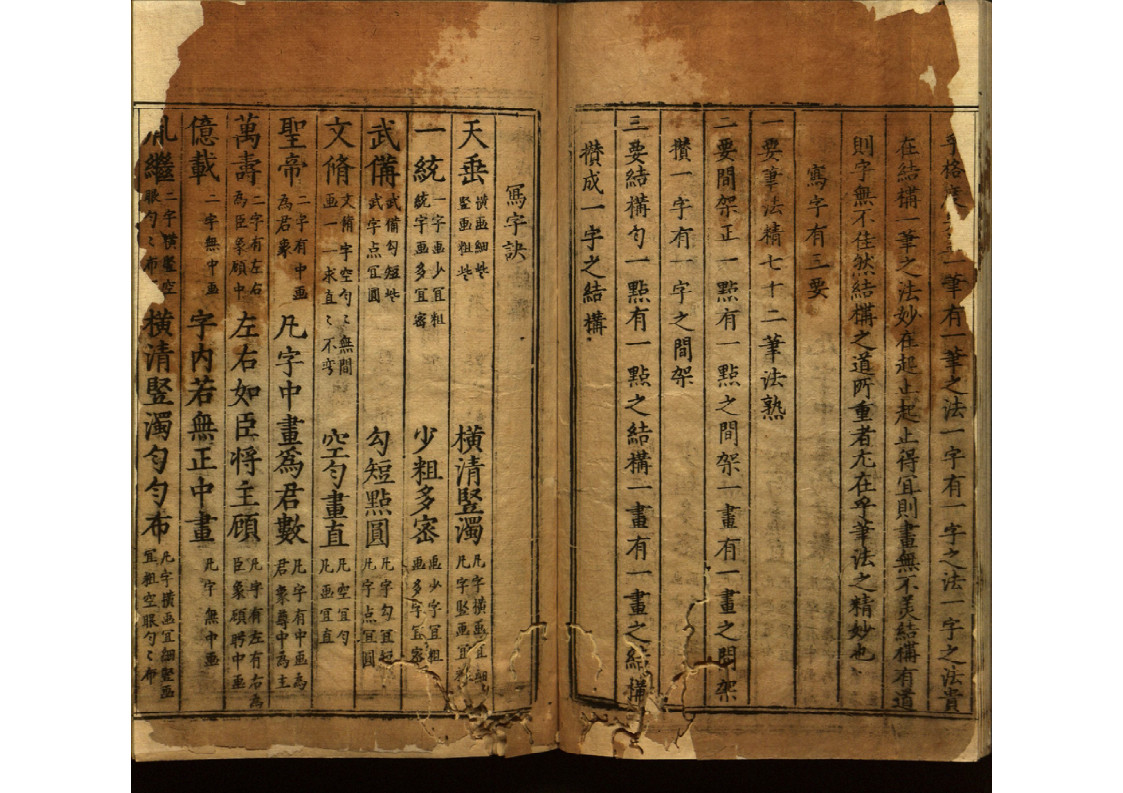 乎格度 一筆有一筆之法一字有一字之法一字之法貴
在結構一筆之法妙在起止起止得冝則畫無不美結構有道
則字無不佳然結構之道所重者尢在乎筆法之精妙也
寫字有三要
一要筆法精七十二筆法熟
二要間架正一點有一點之間架一畫有一畫之間架
攢一字有一字之間架
三要結構勻一點有一點之結構一畫有一畫之結構
攢成一字之結構
寫字訣
天垂 橫画細些 竪画粗些 橫清竪濁 凡字橫画冝細 凡字竪画冝
一統 一字画少冝粗 統字画多冝密 少粗多密 画少字冝粗 画多字冝密
武備 武備勾短些 武字点冝圓 勾短點圓 凡字勾冝短 凡字点冝圓
文脩 文脩字空勻〻無間 画一一求直〻不弯 空勻畫直 凡空冝勻 凡画冝直
聖帝 二字有中画 為君象 凡字中畫為君數 凡字有中画為 君象尊中為主
萬壽 二字有左右 為臣象顧中 左右如臣将主顧 凡字有左有右為 臣象顧聘中画
億載 二字無中画 字內若無正中畫 凡字無中画
繼 二字橫竪空 眼勻〻布 橫清竪濁勻勻布 凡字橫画冝細竪画 冝粗空眼勻〻布